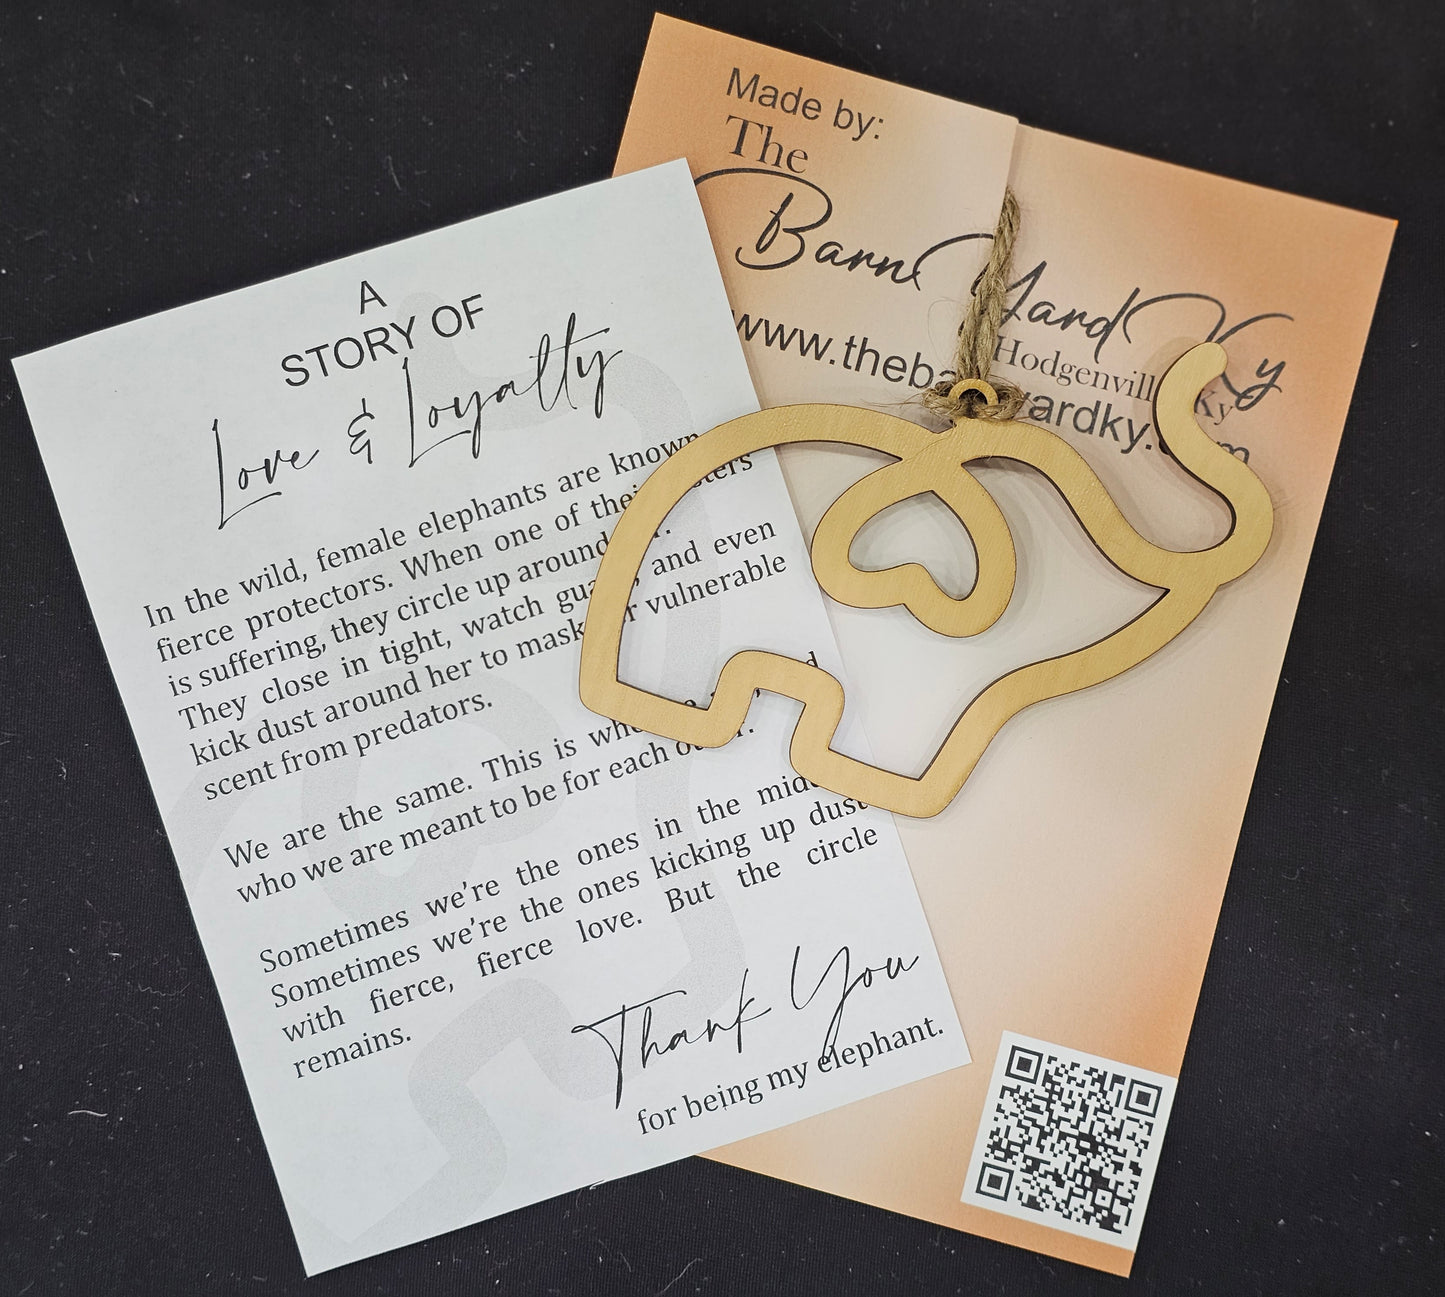 Made by:
The
Barn Yard Ky
Hodgenvill Ky
www.theba yardky. m
A
STORY OF
Love & Loyalty
In the wild, female elephants are known
fierce protectors. When one of thei sters
is suffering, they circle up around
They close in tight, watch gua and even
kick dust around her to mask vulnerable
scent from predators.
We are the same. This is wh
who we are meant to be for each
Sometimes we're the ones in the
Sometimes we're the ones kicking up dust
with fierce, fierce love. But the circle
remains.
Thank You
for being my elephant.